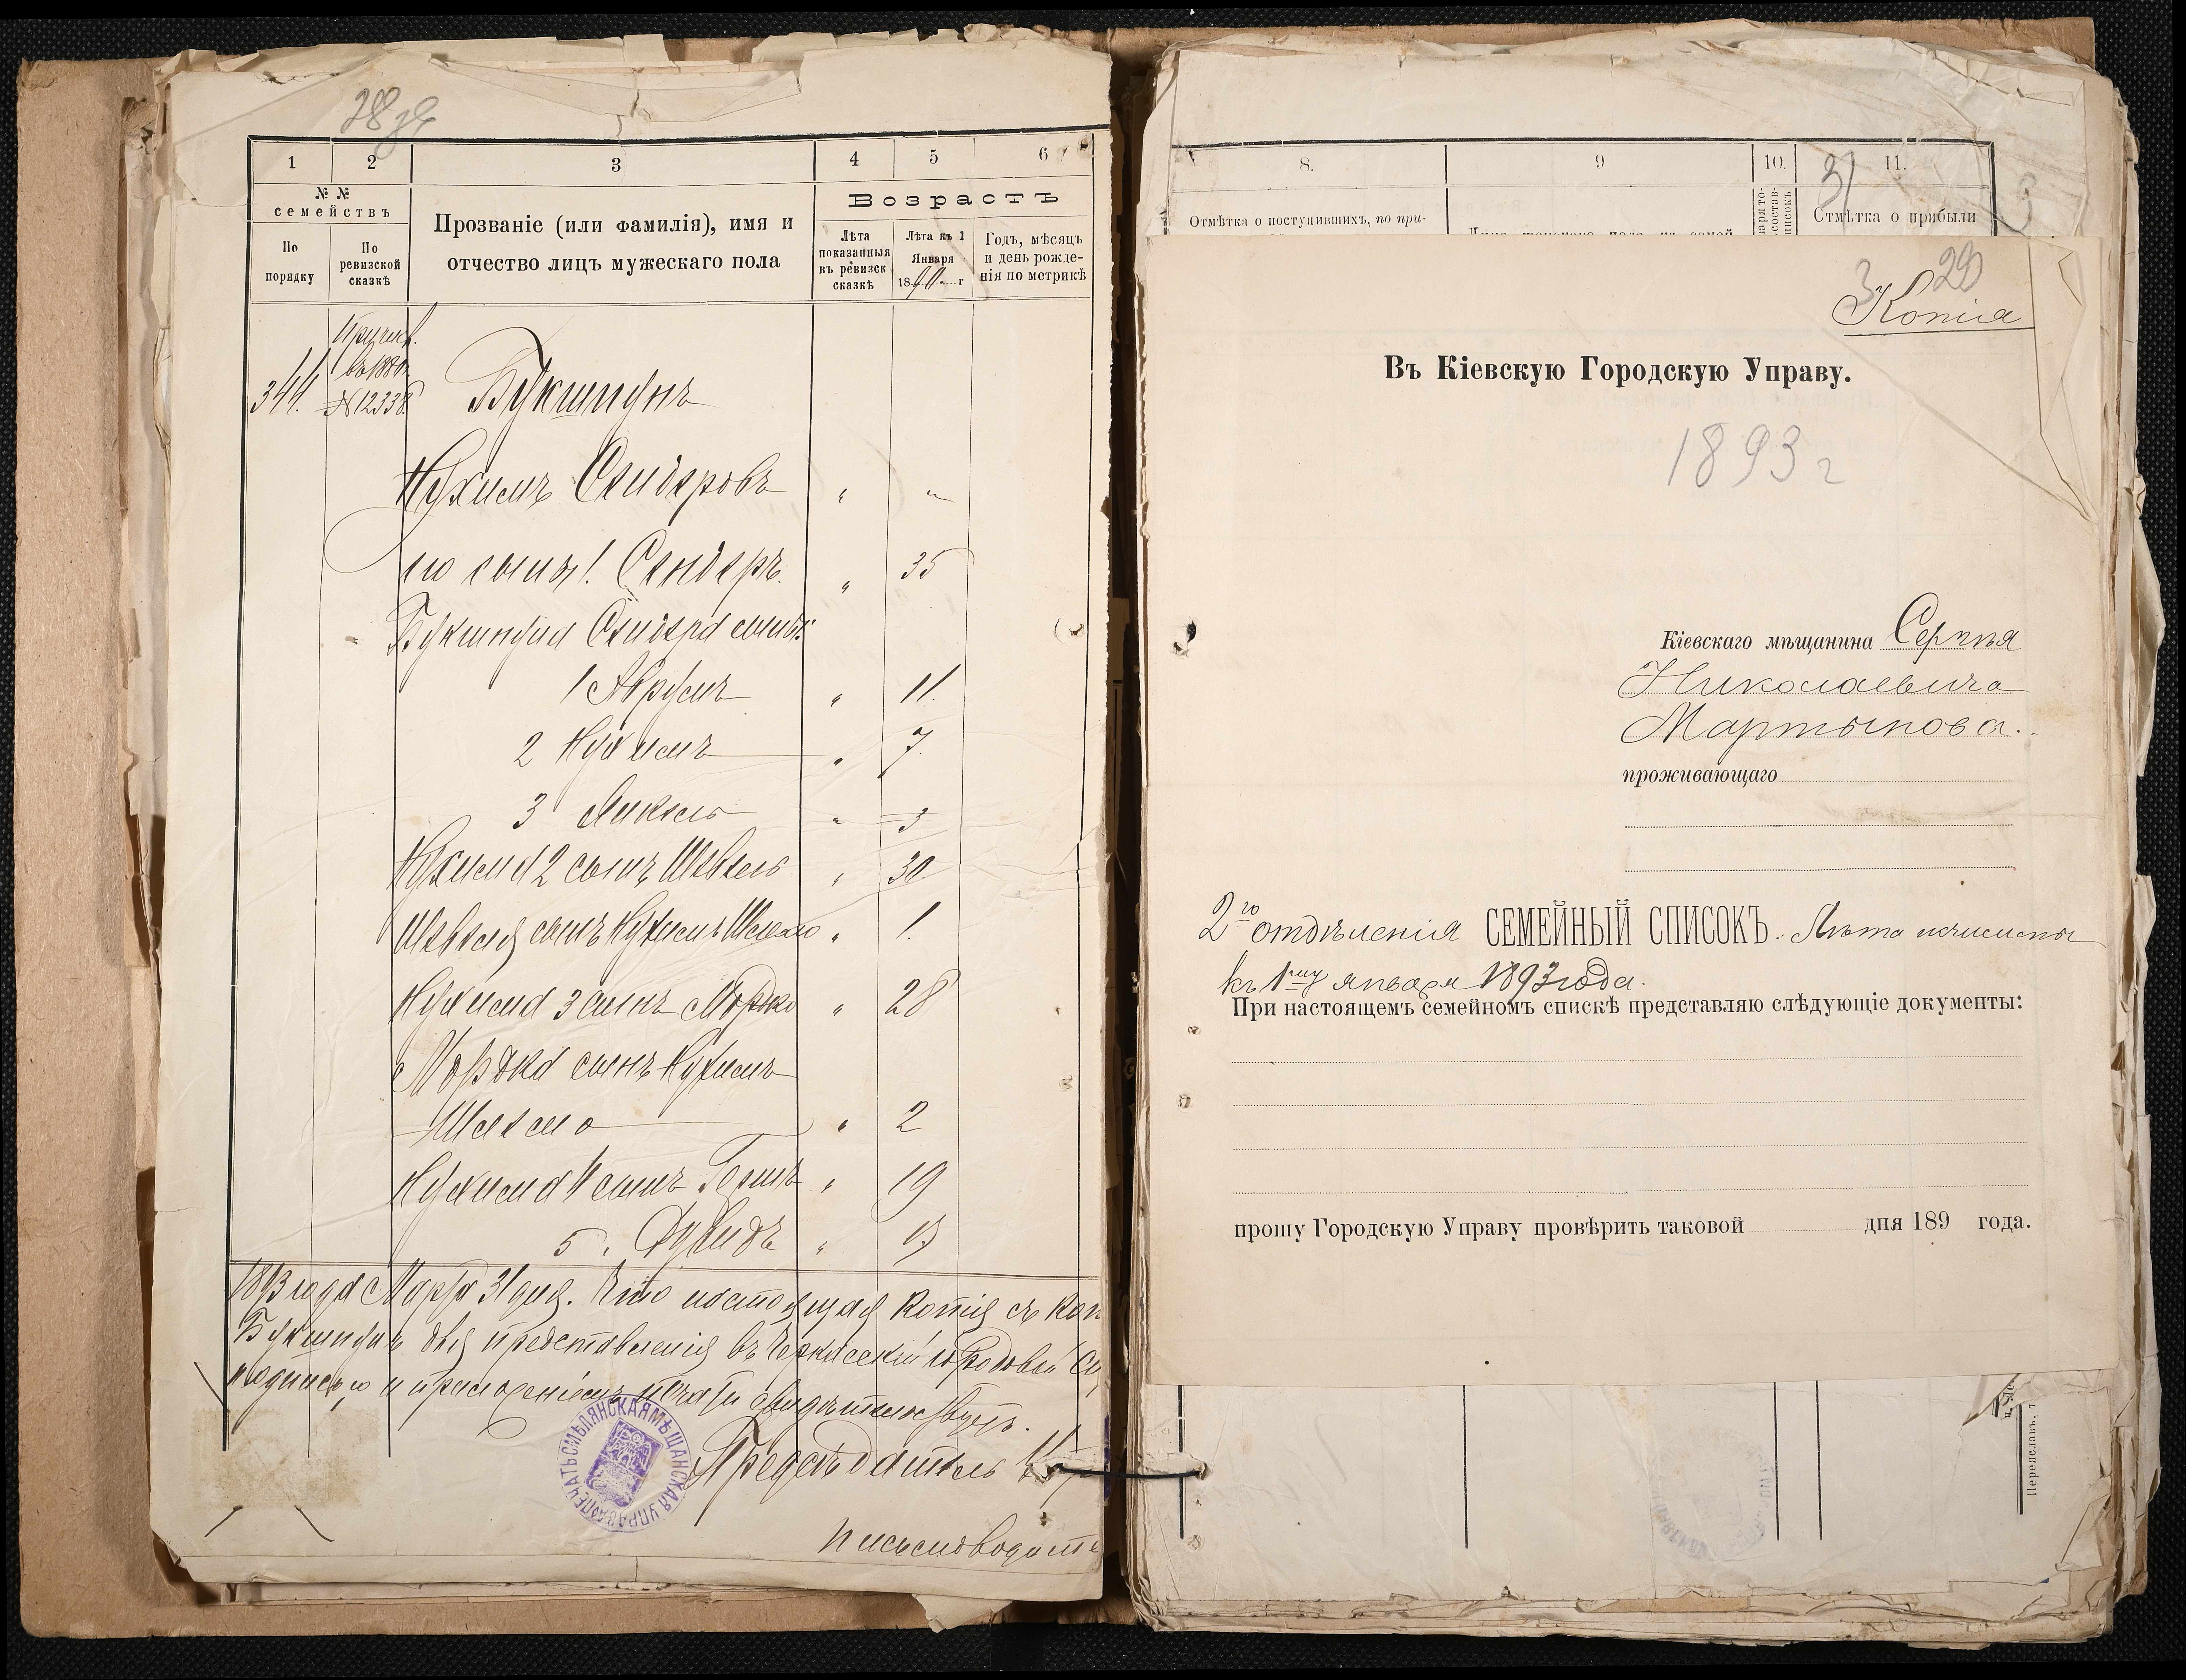 28
1
2
3
4
5
6
№ №
семействъ
По порядку
По ревизской сказкѣ
Прозваніе (или фамилія), имя и отчество лицъ мужескаго пола
Возрастъ
Лѣта показанныя въ ревизск сказкѣ
Лѣта къ 1 Января 1890 г
Годъ, мѣсяцъ и день рожденія по метрикѣ
344.
въ 1880
№ 12338
Букшпунъ
Нухимъ Сендеровъ " "
его сынъ 1. Сендеръ. " 35
Букшпуна Сендера сынъ:
1 Аврумъ " 11.
2 Нухимъ " 7.
3 " 3
Нухима 2 сынъ Шевель " 30
Шевеля сынъ Нухимъ Шлемо " 1.
Нухима 3 сынъ Мордко " 28
Мордка сынъ Нухимъ
Шлемо " 2
Нухима 4 сынъ " 19
5. Дувидъ "
1893 года Марта 31 дня. Что настоящая копія съ коп
Букшпунъ для представленія въ Черкасскій городовой
подписью и приложеніемъ печати свидѣтельствуетъ.
ПЕЧАТЬ СМѢЛЯНСКАЯ МѢЩАНСКАЯ УПРАВА
Предсѣдатель
Письмоводите
8.
9
10.
11.
31
Отмѣтка о поступившихъ, по при-
Отмѣтка о прибыли
3
29
Копія
Въ Кіевскую Городскую Управу.
1893 г
Кіевскаго мѣщанина Сергѣя
Николаевича
Мартынова.
проживающаго
2го отдѣленія СЕМЕЙНЫЙ СПИСОКЪ. Лѣта исчислены
къ 1му января 1893 года.
При настоящемъ семейномъ спискѣ представляю слѣдующіе документы:
прошу Городскую Управу провѣрить таковой дня 189 года.
Переяславъ, т